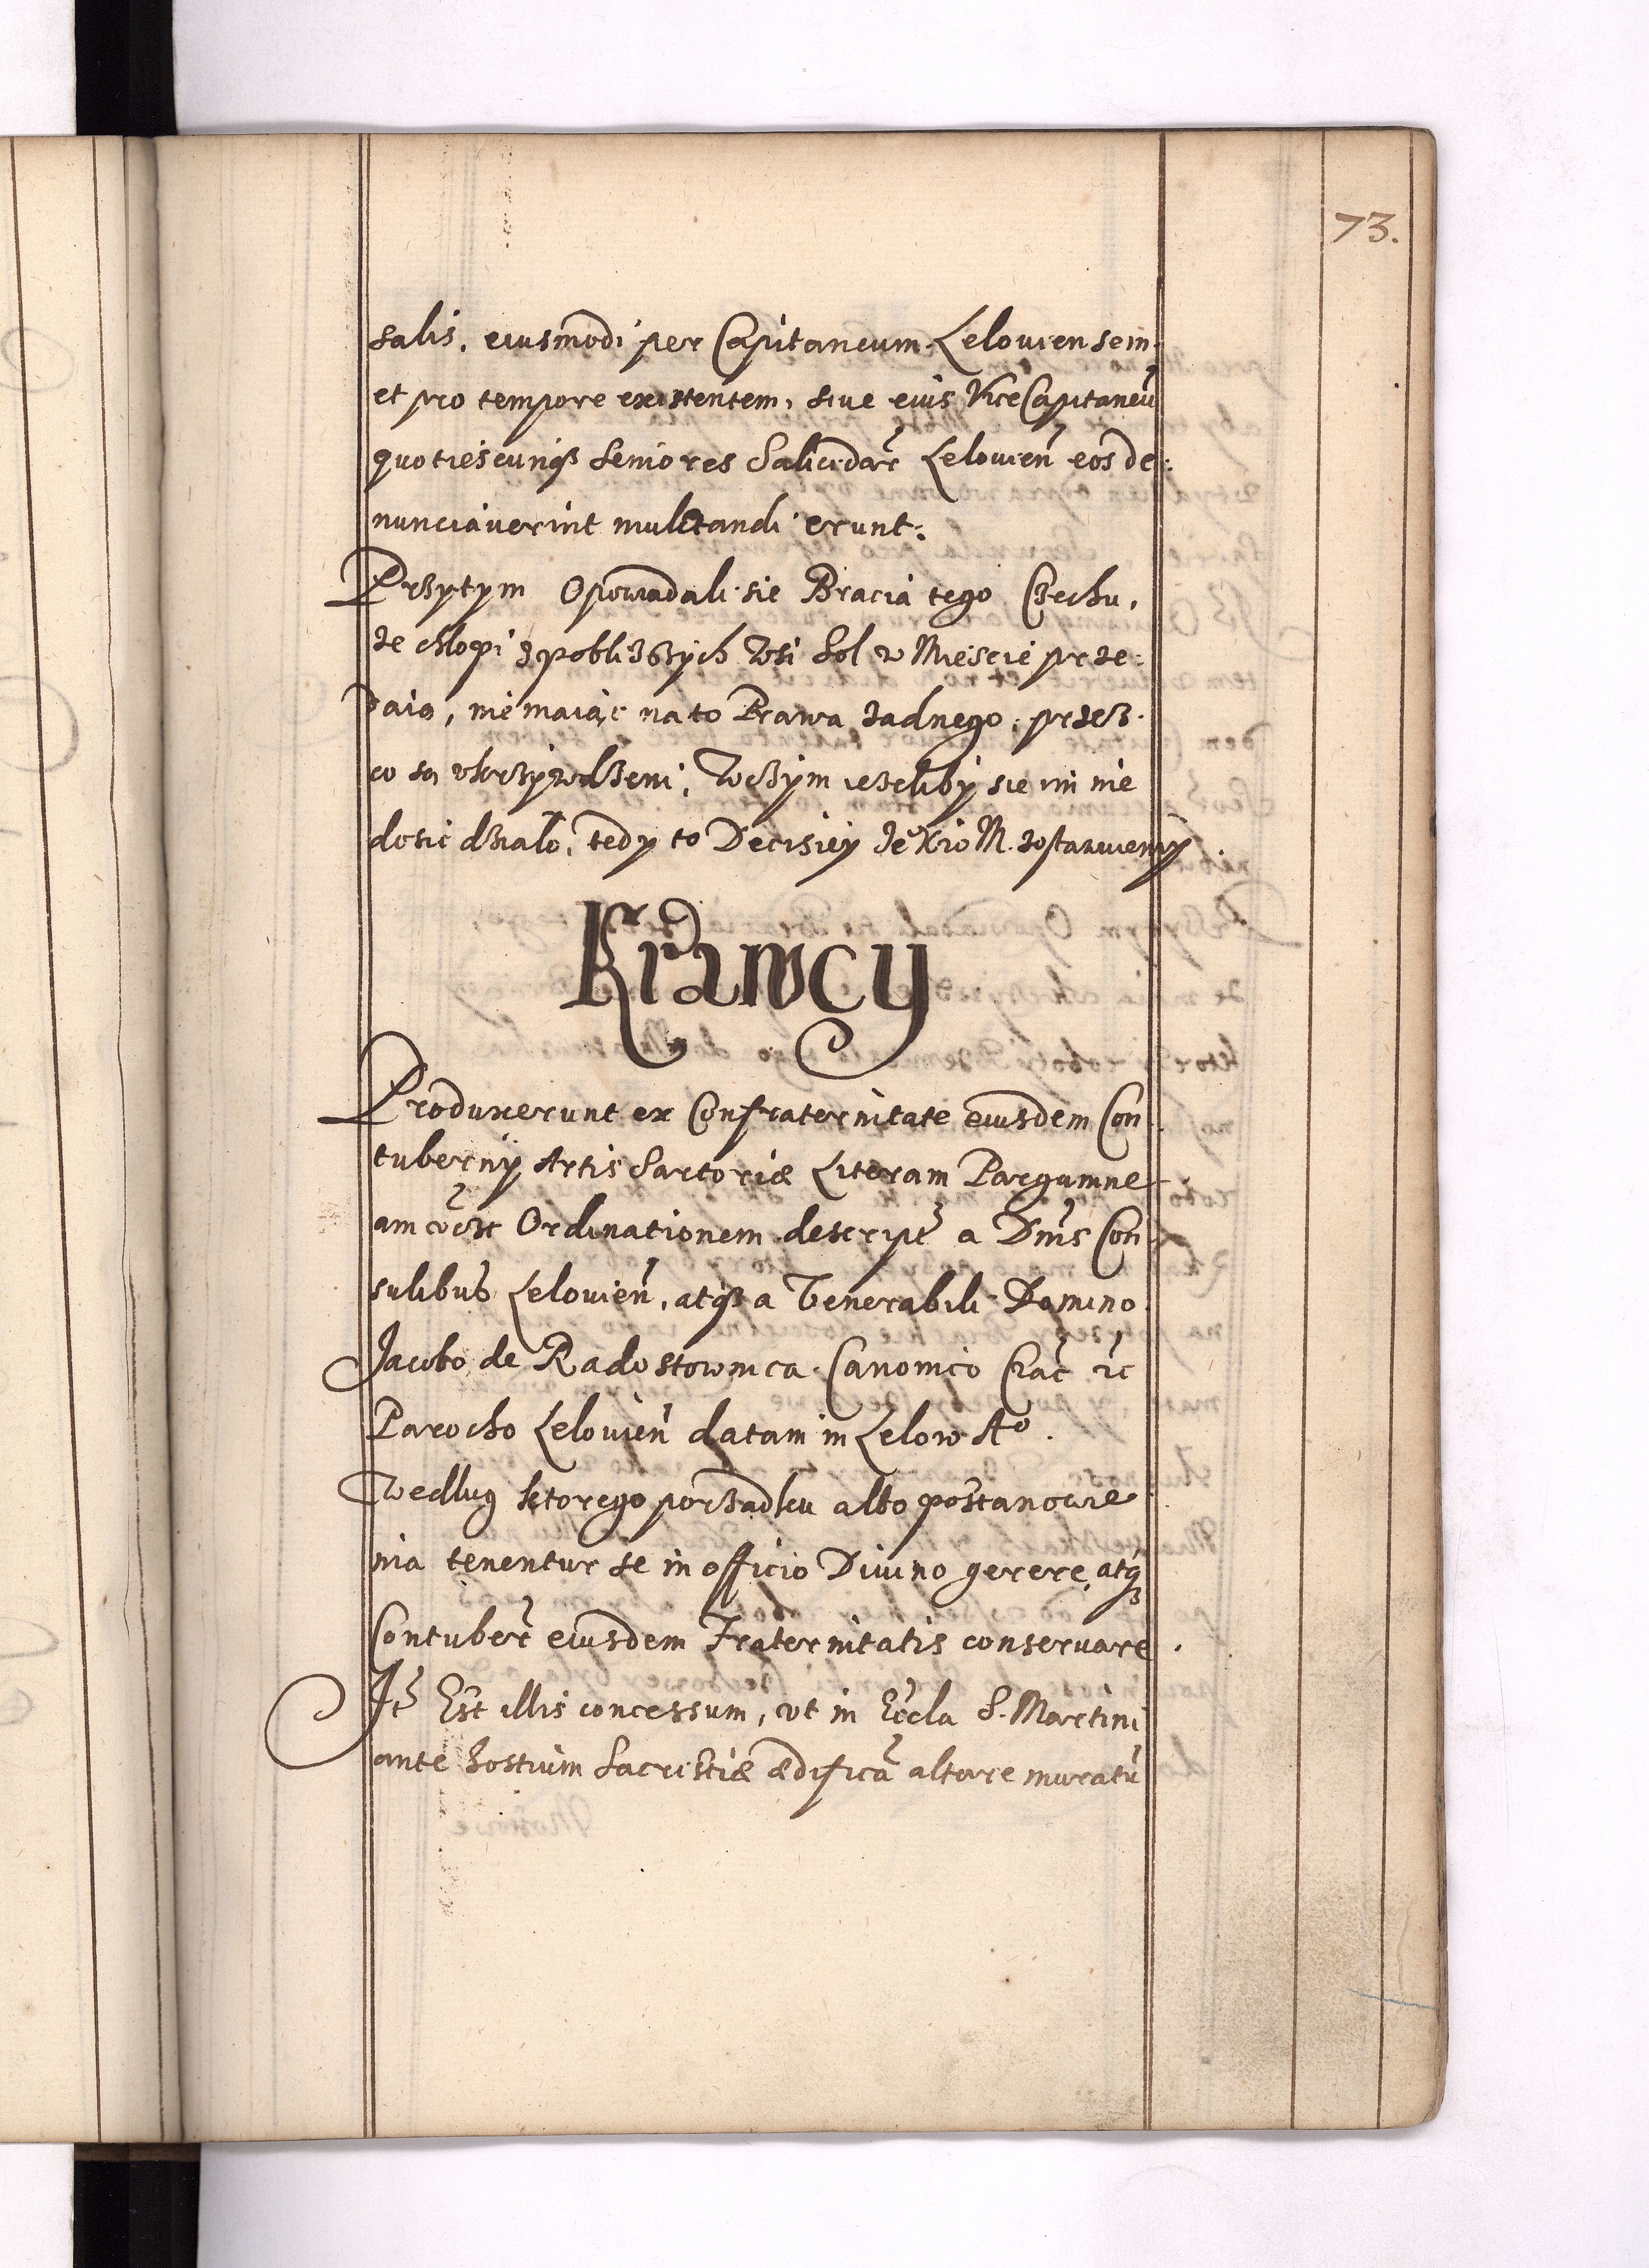 73.
salis. eiusmodi per Capitaneum Leloviensem
et pro tempore existentem, siue eius ViceCapitaneũ
quotiescunqз seniores Salicidar̃ Lelovien̄ eos de:
nunciaverint mulctandi erunt:
Przytym Opowiadali sie Bracia tego Czechu,
że chłopi z pobliższych Wsi Sol w Miescie prze:
daią, nie maiąc na to Prawa żadnego, przez
co są vkrzywdzeni, Wczym ieżeliby sie im nie
dosic działo, tedy to Decisiey Je Kró M. zostawuiemy
Krawcy
Produxerunt ex Confraternitate eiusdem Con
tubernij Artis Sartoriæ Literam Pargamne
am Ordinationem descript̃ a Dnis Con
sulibus Lelovien̄, atqз a Venerabili Domino
Jacobo de Radostownica Canonico Crac̃ ic
Parocho Lelovien̄ datam in Lelow Aº.
Wedlug ktorego porządku albo postanowie
nia tenentur se in officio Diuino gerere, atqз
Contuber̃ eiusdem Fraternitatis conseruare.
Jt̃ Est illis concessum, vt in Eccla S. Martini
ante hostium Sacristiæ ædificã altare muratũ